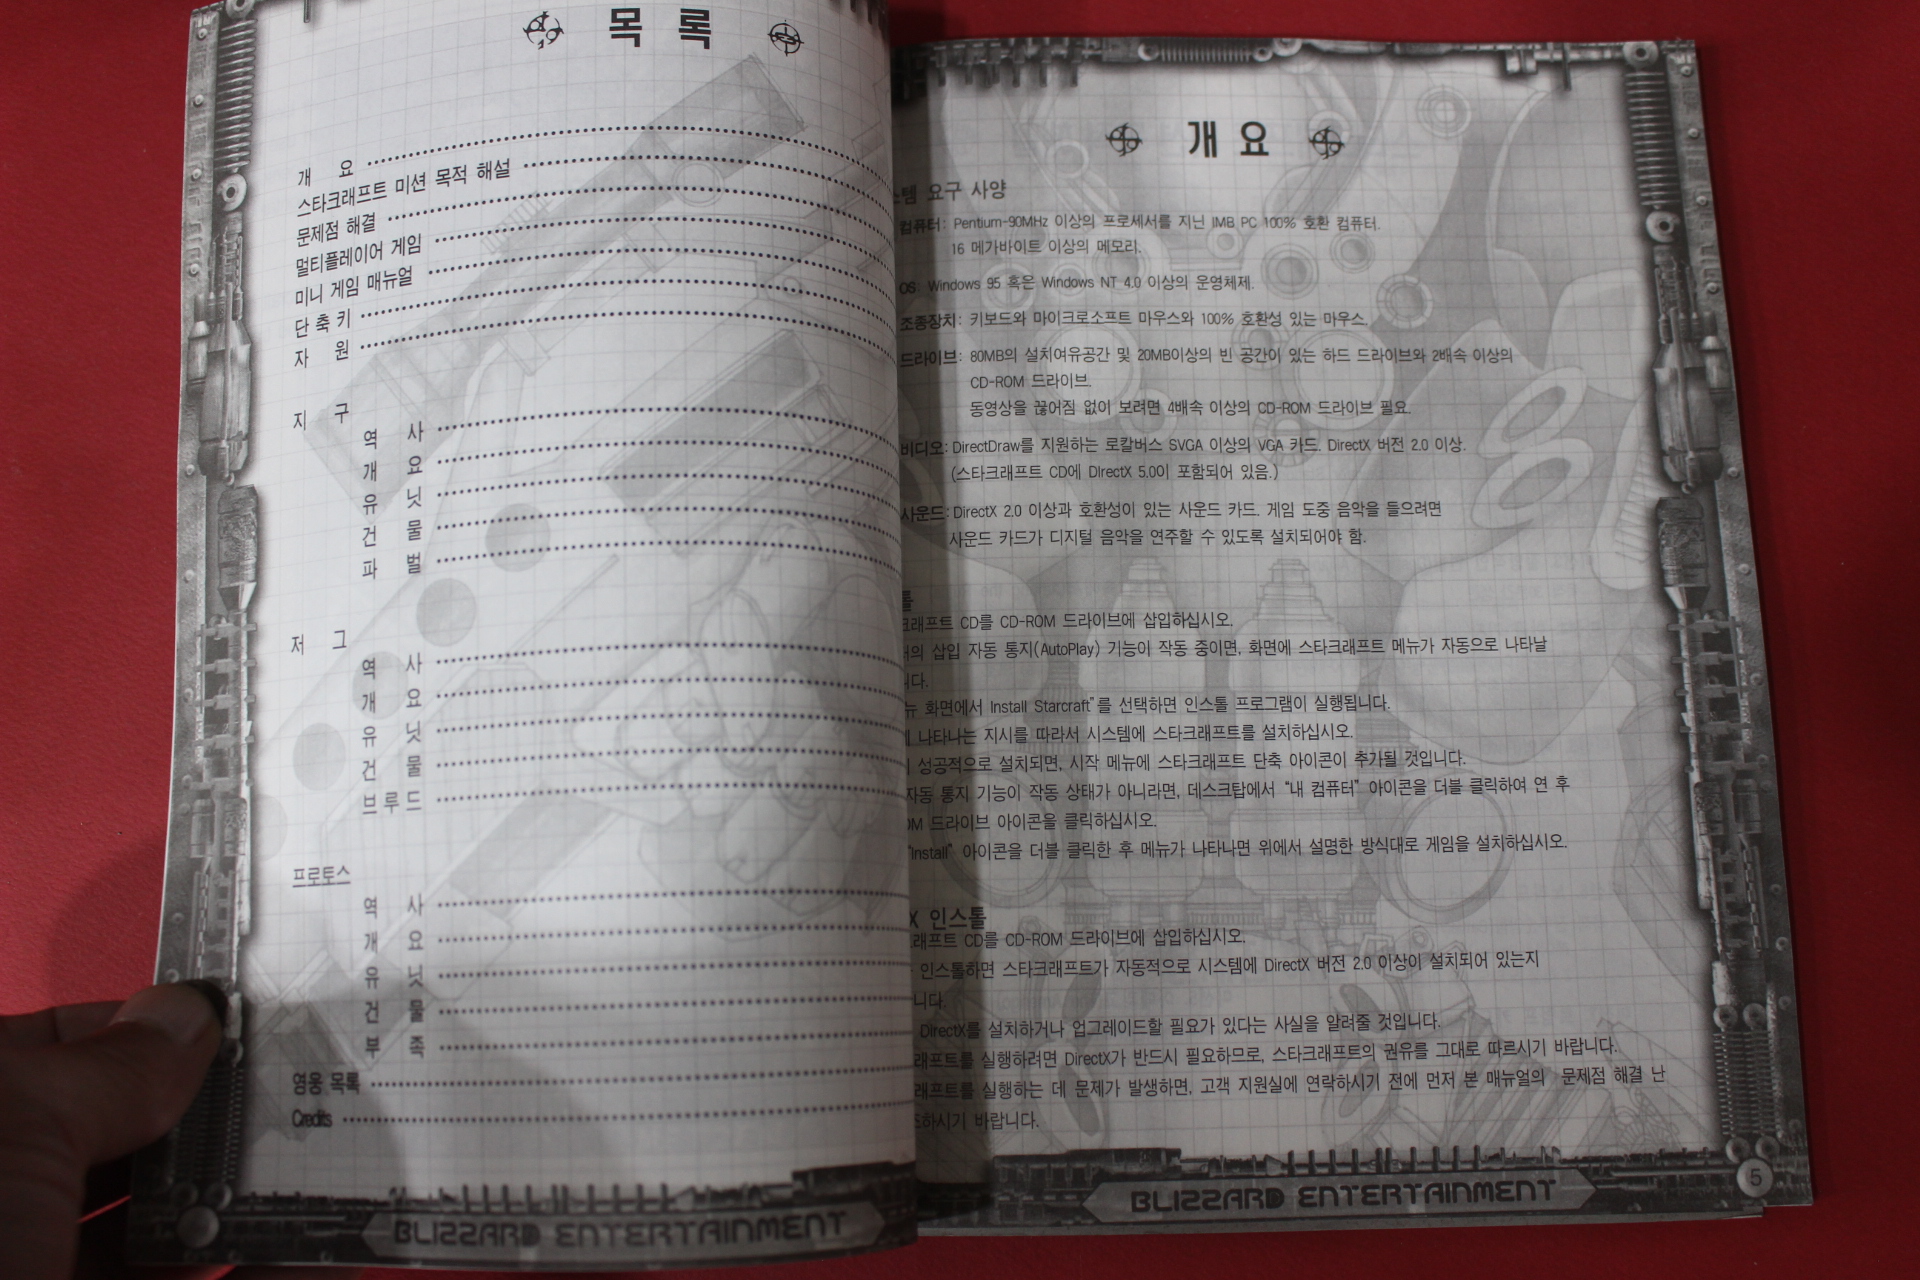 목 록
개 요
스타크래프트 미션 목적 해설
문제점 해결
멀티플레이어 게임
미니 게임 매뉴얼
단 축 키
자 원
지 구
역 사
개 요
유 닛
건 물
파 벌
저 그
역 사
개 요
유 닛
건 물
브 루 드
프로토스
역 사
개 요
유 닛
건 물
부 족
영웅 목록
Credits
BLIZZARD ENTERTAINMENT
개 요
요구 사양
컴퓨터: Pentium-90MHz 이상의 프로세서를 지닌 IMB PC 100% 호환 컴퓨터.
16 메가바이트 이상의 메모리.
OS: Windows 95 혹은 Windows NT 4.0 이상의 운영체제.
조종장치: 키보드와 마이크로소프트 마우스와 100% 호환성 있는 마우스.
드라이브: 80MB의 설치여유공간 및 20MB이상의 빈 공간이 있는 하드 드라이브와 2배속 이상의
CD-ROM 드라이브.
동영상을 끊어짐 없이 보려면 4배속 이상의 CD-ROM 드라이브 필요.
비디오: DirectDraw를 지원하는 로칼버스 SVGA 이상의 VGA 카드. DirectX 버전 2.0 이상.
(스타크래프트 CD에 DirectX 5.0이 포함되어 있음.)
사운드: DirectX 2.0 이상과 호환성이 있는 사운드 카드. 게임 도중 음악을 들으려면
사운드 카드가 디지털 음악을 연주할 수 있도록 설치되어야 함.
크래프트 CD를 CD-ROM 드라이브에 삽입하십시오.
삽입 자동 통지(AutoPlay) 기능이 작동 중이면, 화면에 스타크래프트 메뉴가 자동으로 나타날
니다.
뉴 화면에서 Install Starcraft"를 선택하면 인스톨 프로그램이 실행됩니다.
나타나는 지시를 따라서 시스템에 스타크래프트를 설치하십시오.
성공적으로 설치되면, 시작 메뉴에 스타크래프트 단축 아이콘이 추가될 것입니다.
자동 통지 기능이 작동 상태가 아니라면, 데스크탑에서 "내 컴퓨터" 아이콘을 더블 클릭하여 연 후
OM 드라이브 아이콘을 클릭하십시오.
"Install" 아이콘을 더블 클릭한 후 메뉴가 나타나면 위에서 설명한 방식대로 게임을 설치하십시오.
X 인스톨
래프트 CD를 CD-ROM 드라이브에 삽입하십시오.
인스톨하면 스타크래프트가 자동적으로 시스템에 DirectX 버전 2.0 이상이 설치되어 있는지
니다.
DirectX를 설치하거나 업그레이드할 필요가 있다는 사실을 알려줄 것입니다.
래프트를 실행하려면 DirectX가 반드시 필요하므로, 스타크래프트의 권유를 그대로 따르시기 바랍니다.
래프트를 실행하는 데 문제가 발생하면, 고객 지원실에 연락하시기 전에 먼저 본 매뉴얼의 문제점 해결 난
조하시기 바랍니다.
BLIZZARD ENTERTAINMENT
5